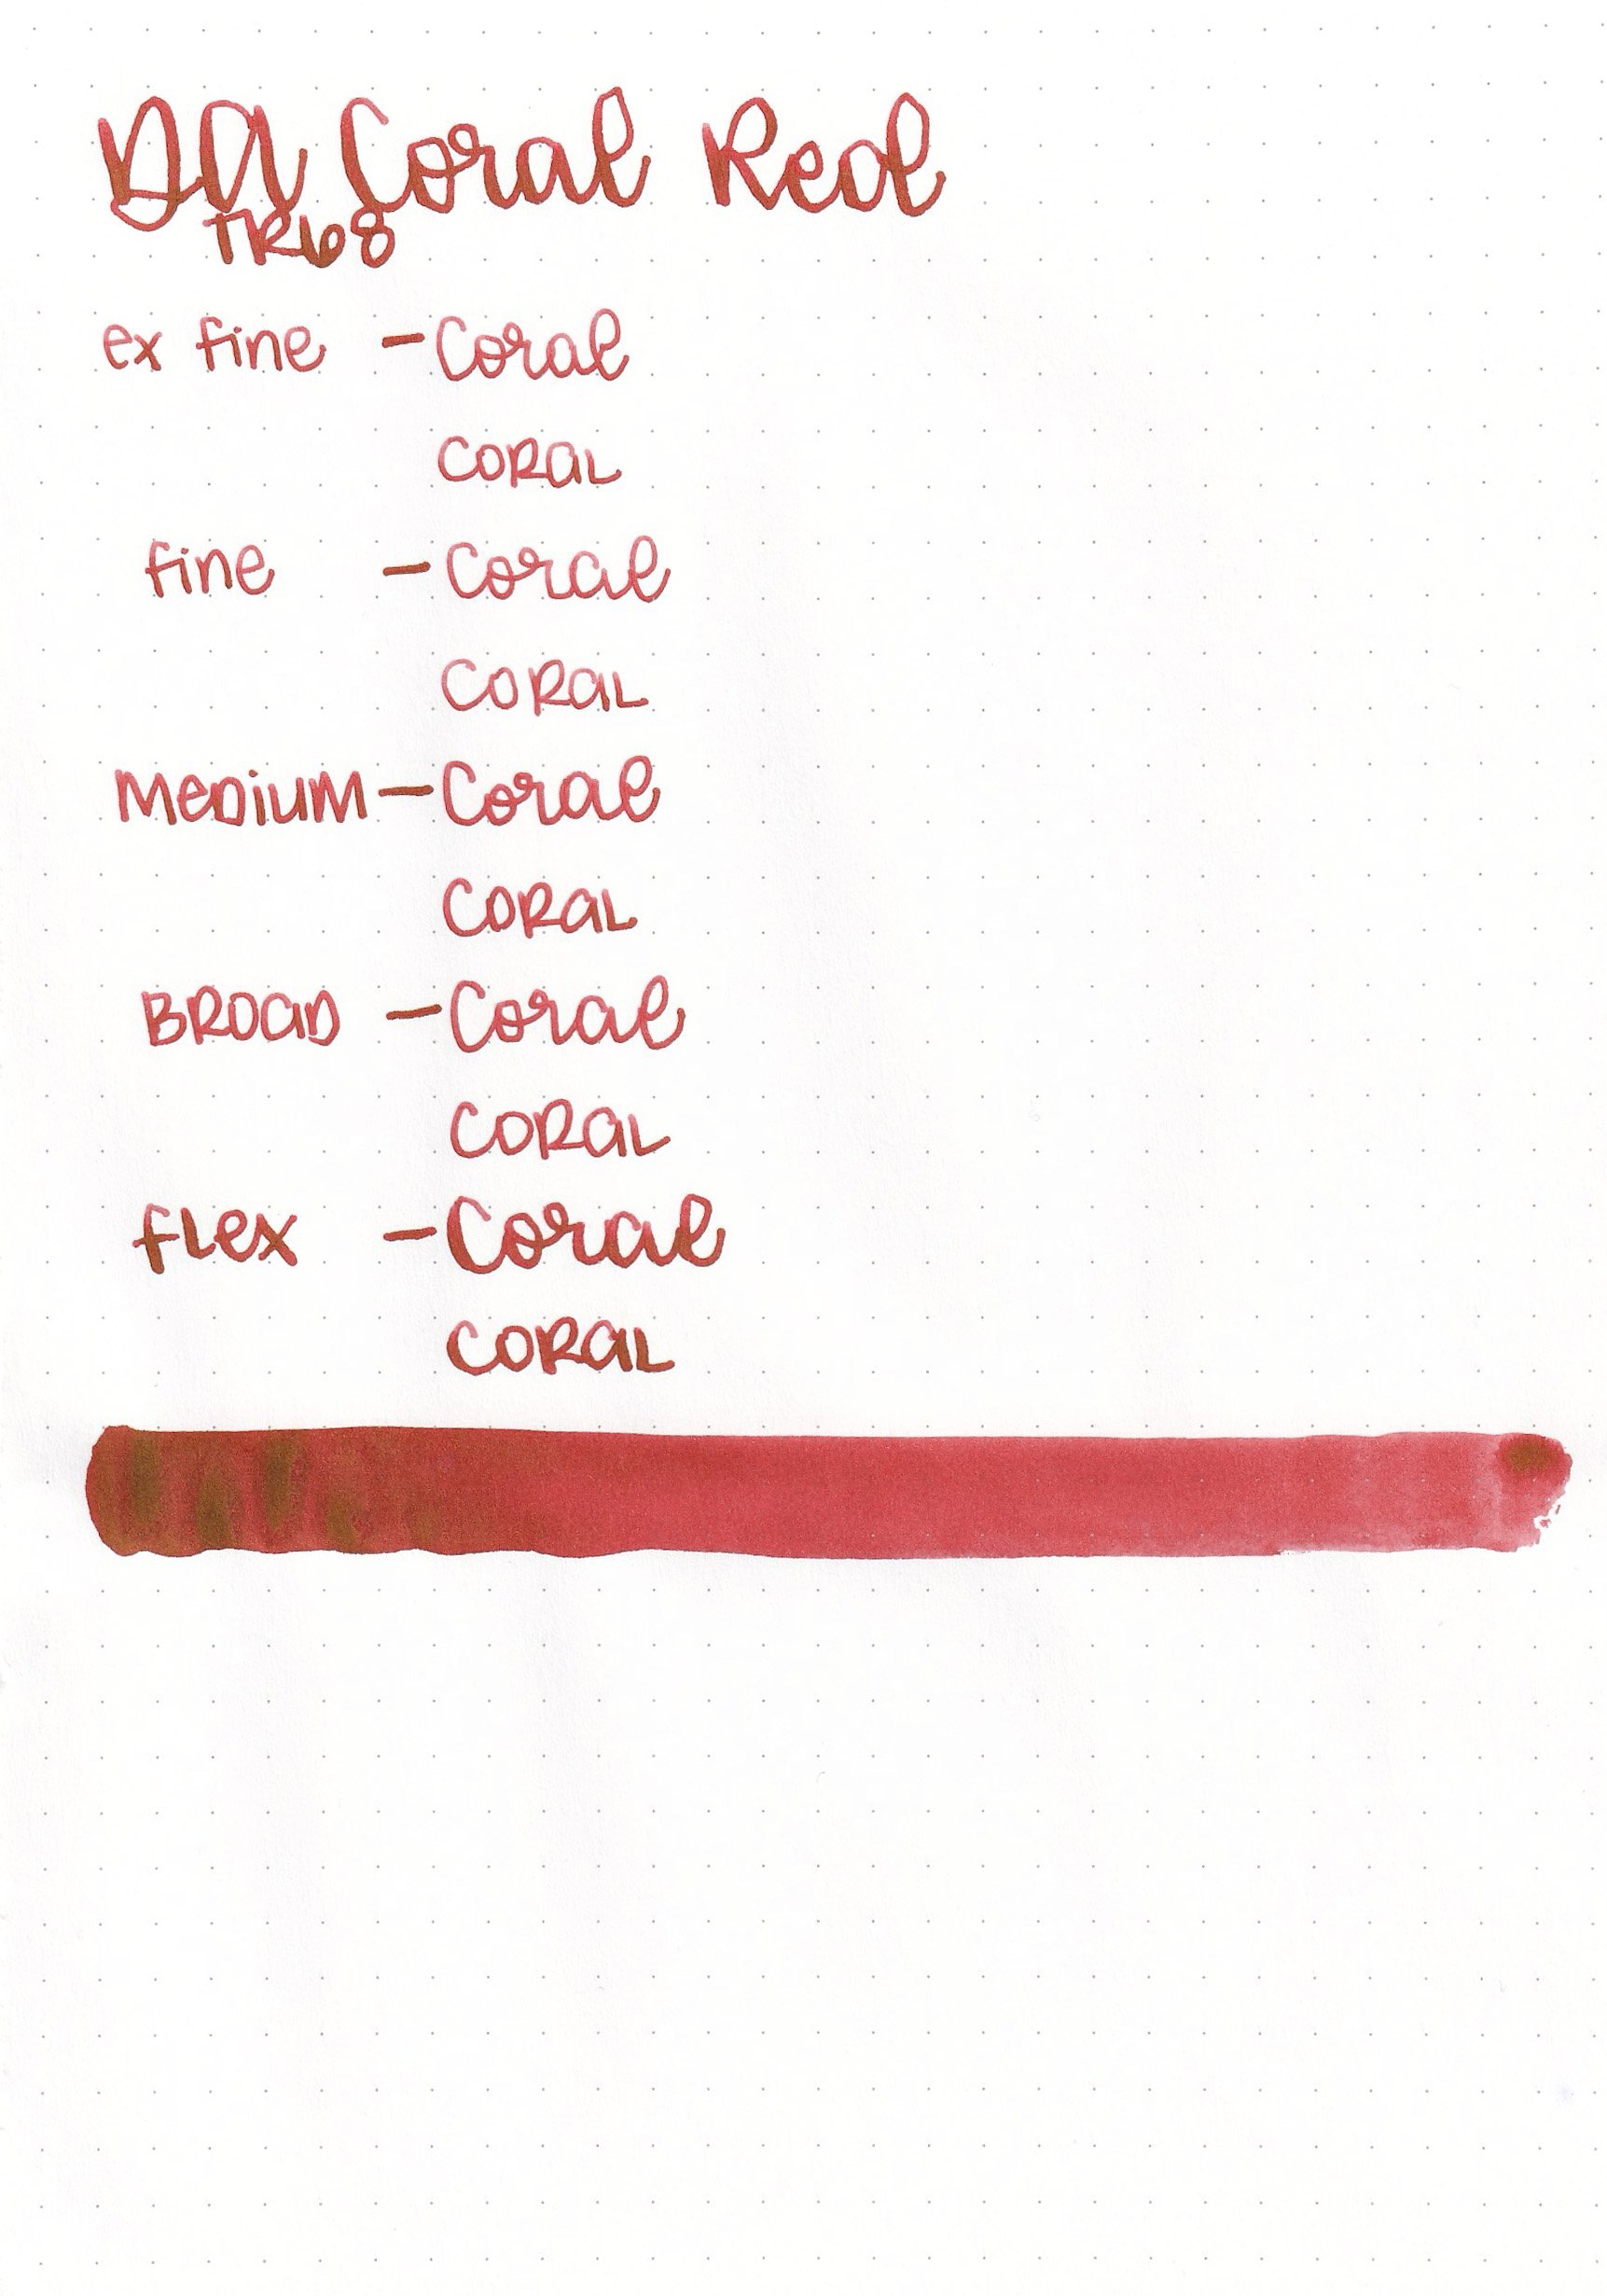 DA Coral Red
TR68
ex fine - Coral
CORAL
fine - Coral
CORAL
MEDIUM - Coral
CORAL
BROAD - Coral
CORAL
flex - Coral
CORAL